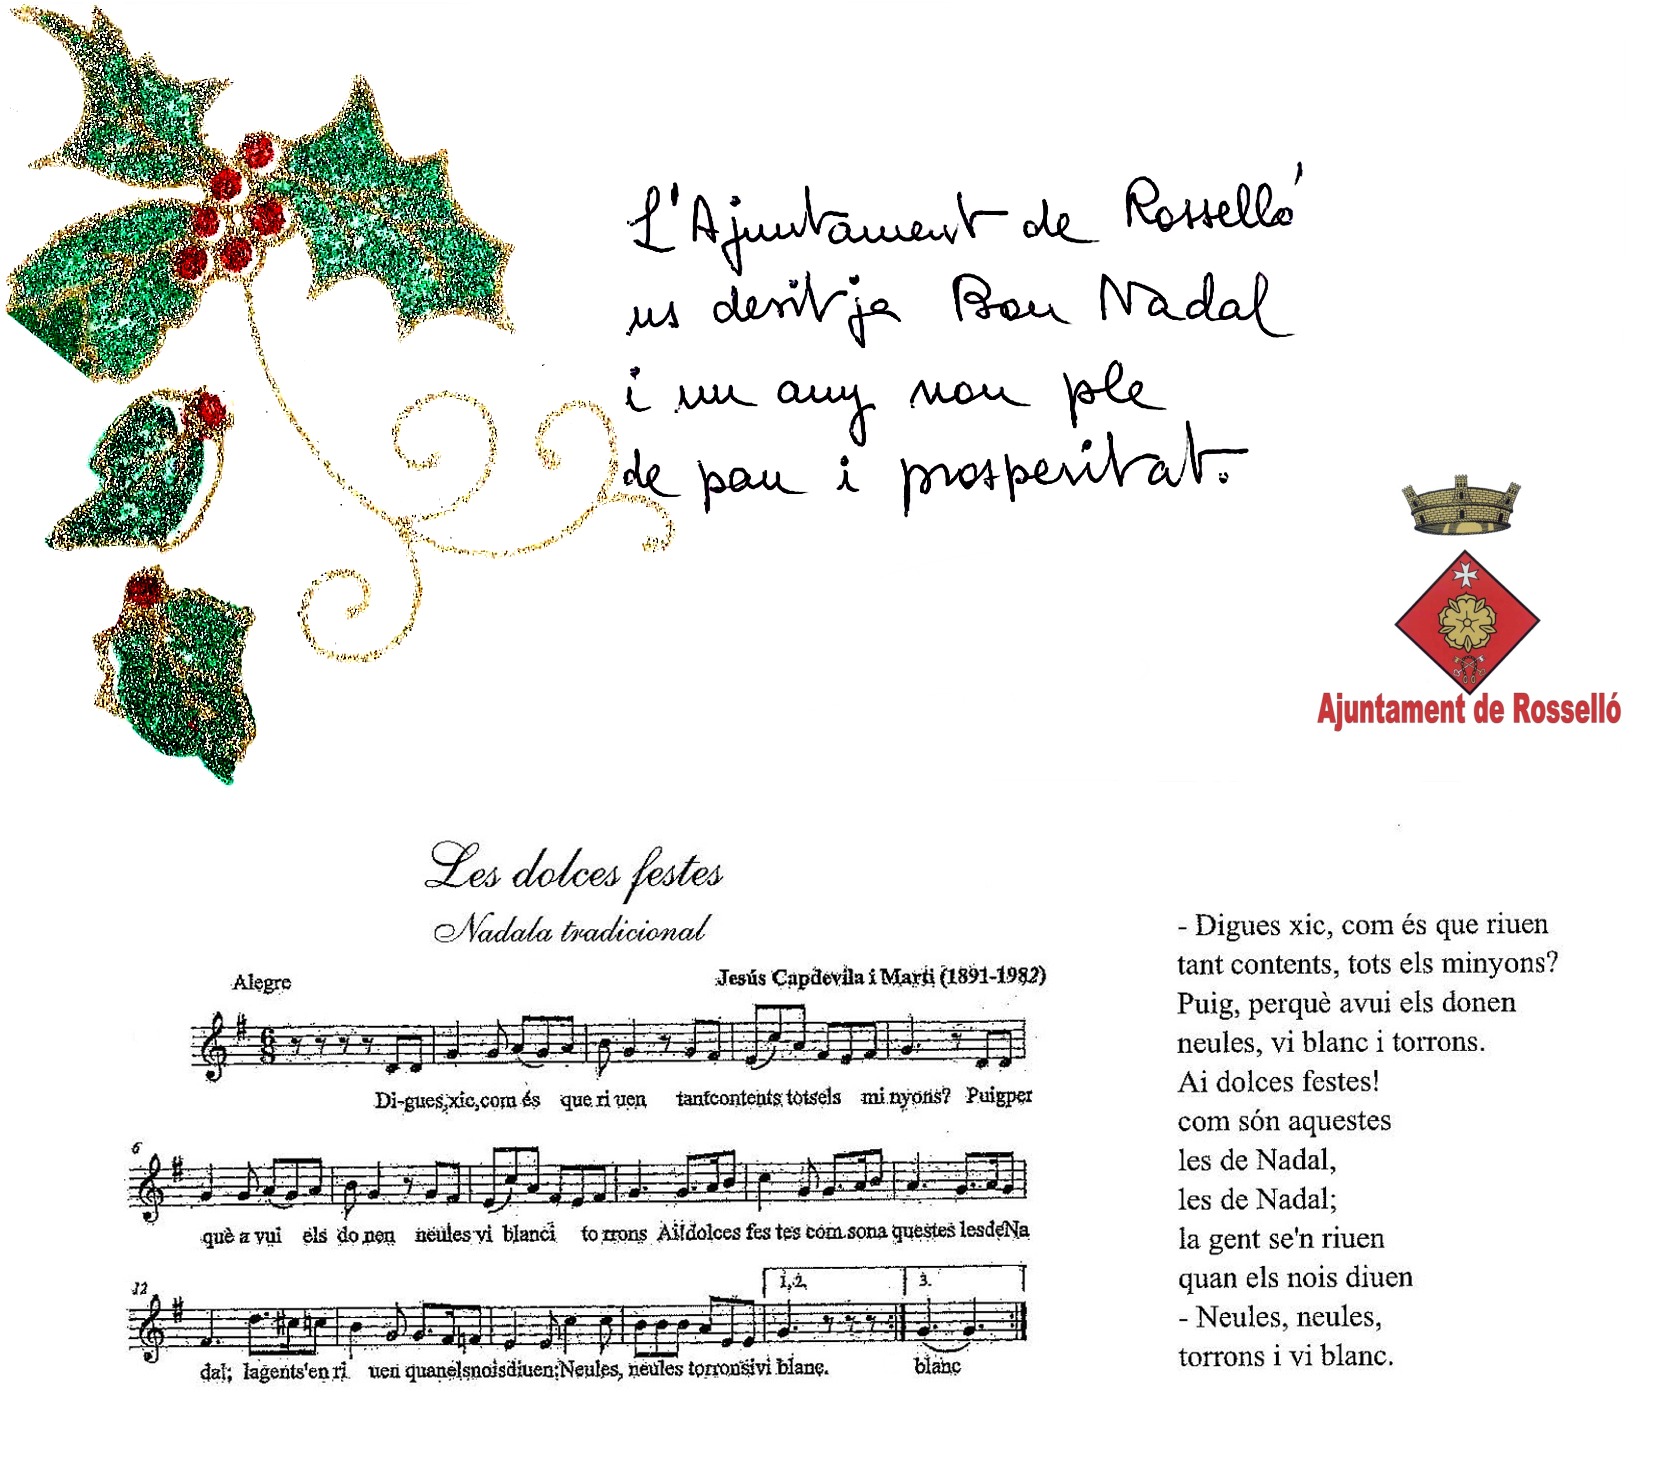 L'Ajuntament de Rosselló
us desitja Bon Nadal
i un any nou ple
de pau i prosperitat.
Ajuntament de Rosselló
Les dolces festes
Nadala tradicional
Alegre
Jesús Capdevila i Marti (1891-1982)
Di-gues, xic, com és que ri uen tantcontents totsels mi nyons? Puigper
6
què a vui els do nen neules vi blanci to rrons Ai!dolces fes tes com sona questes lesdeNa
12
1,2.
3.
dal; lagents'en ri uen quanelsnoisdiuen:Neules, neules torronsivi blanc. blanc
- Digues xic, com és que riuen
tant contents, tots els minyons?
Puig, perquè avui els donen
neules, vi blanc i torrons.
Ai dolces festes!
com són aquestes
les de Nadal,
les de Nadal;
la gent se'n riuen
quan els nois diuen
- Neules, neules,
torrons i vi blanc.